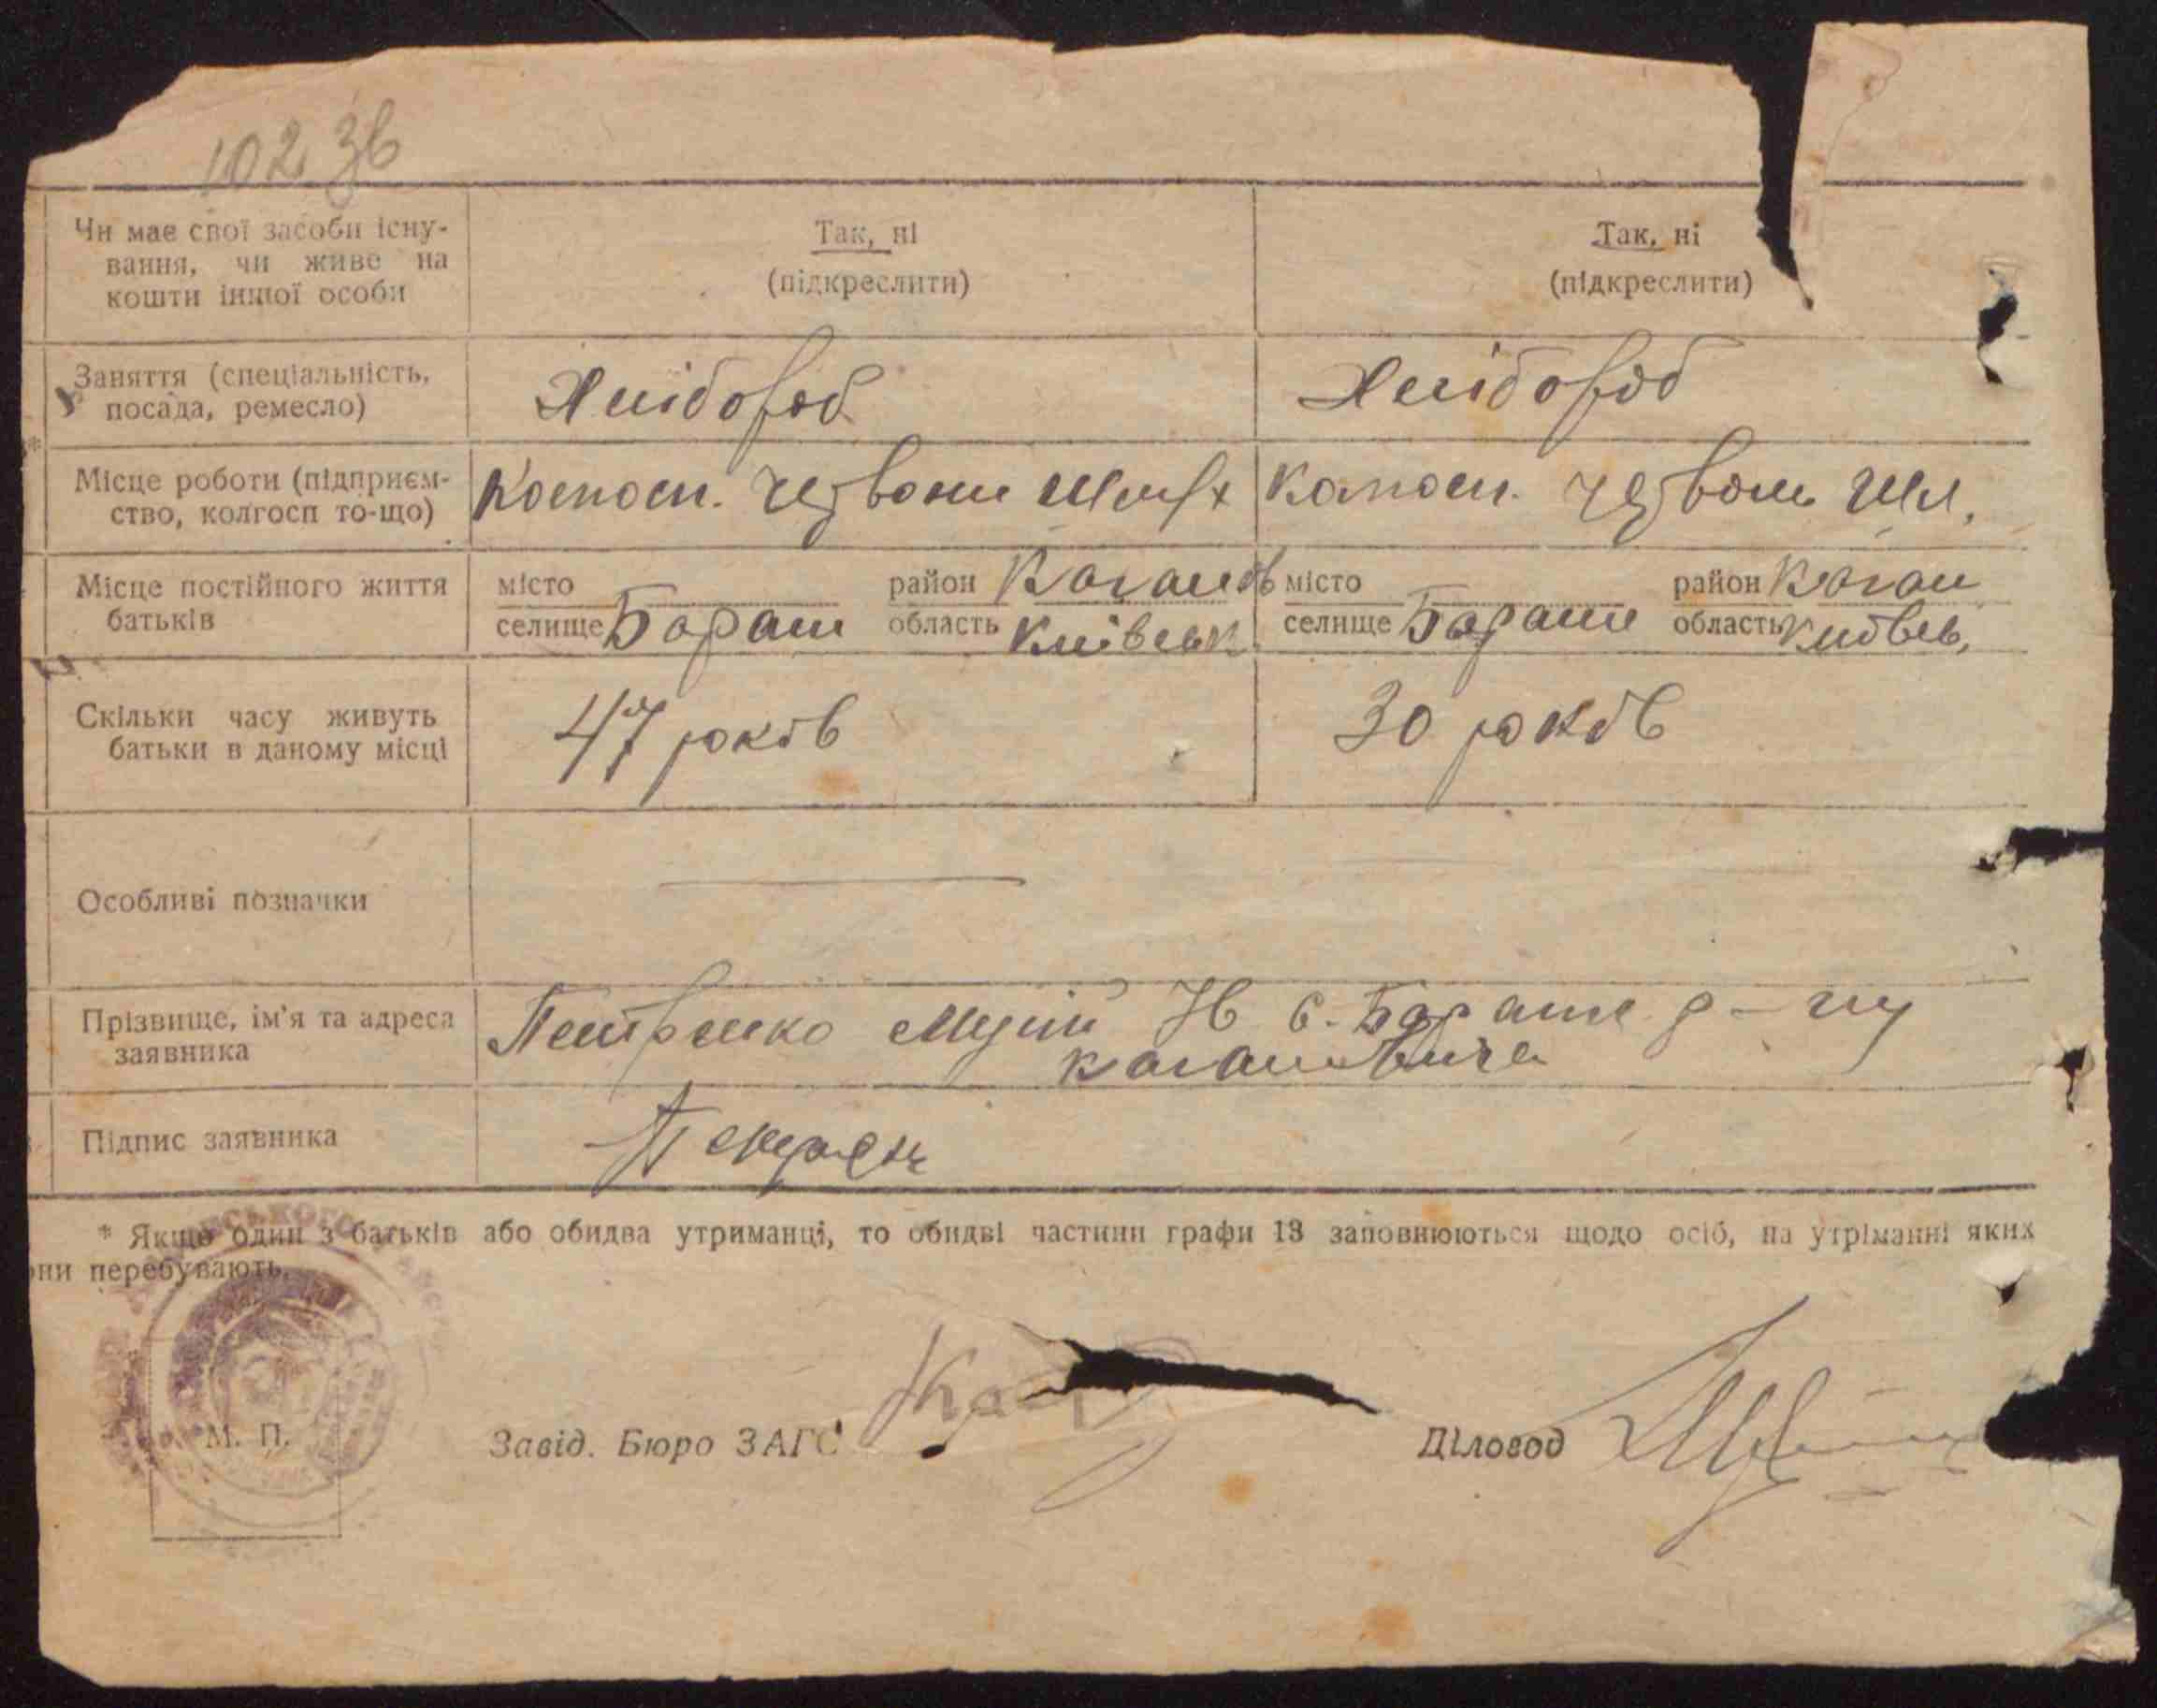 102 зв
Чи має свої засоби існу-
вання, чи живе на
кошти іншої особи
Так, ні
(підкреслити)
Так, ні
(підкреслити)
Заняття (спеціальність,
посада, ремесло)
Хлібороб
Хлібороб
Місце роботи (підприєм-
ство, колгосп то-що)
Колгосп. Червони Шлях
Колгосп. Червон Шл.
Місце постійного життя
батьків
місто
селище Бараши
район Каганов
область Київськ.
місто
селище Бараши
район Каган
область Київсь.
Скільки часу живуть
батьки в даному місці
47 років
30 років
Особливі позначки
Прізвище, ім'я та адреса
заявника
Петренко Мусій Н с. Бараши р-ну
Кагановича
Підпис заявника
* Якщо один з батьків або обидва утриманці, то обидві частини графи 13 заповнюються щодо осіб, на утріманні яких
они перебувають.
М. П.
Завід. Бюро ЗАГС
Діловод